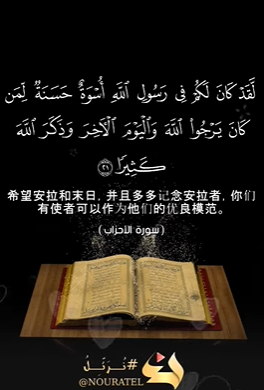 لَّقَدْ كَانَ لَكُمْ فِى رَسُولِ ٱللَّهِ أُسْوَةٌ حَسَنَةٌ لِّمَن
كَانَ يَرْجُوا۟ ٱللَّهَ وَٱلْيَوْمَ ٱلْـَٔاخِرَ وَذَكَرَ ٱللَّهَ
كَثِيرًا ٢١
希望安拉和末日，并且多多记念安拉者，你们
有使者可以作为他们的优良模范。
( سورة الأحزاب )
#نُرَتِّلُ
@NOURATEL